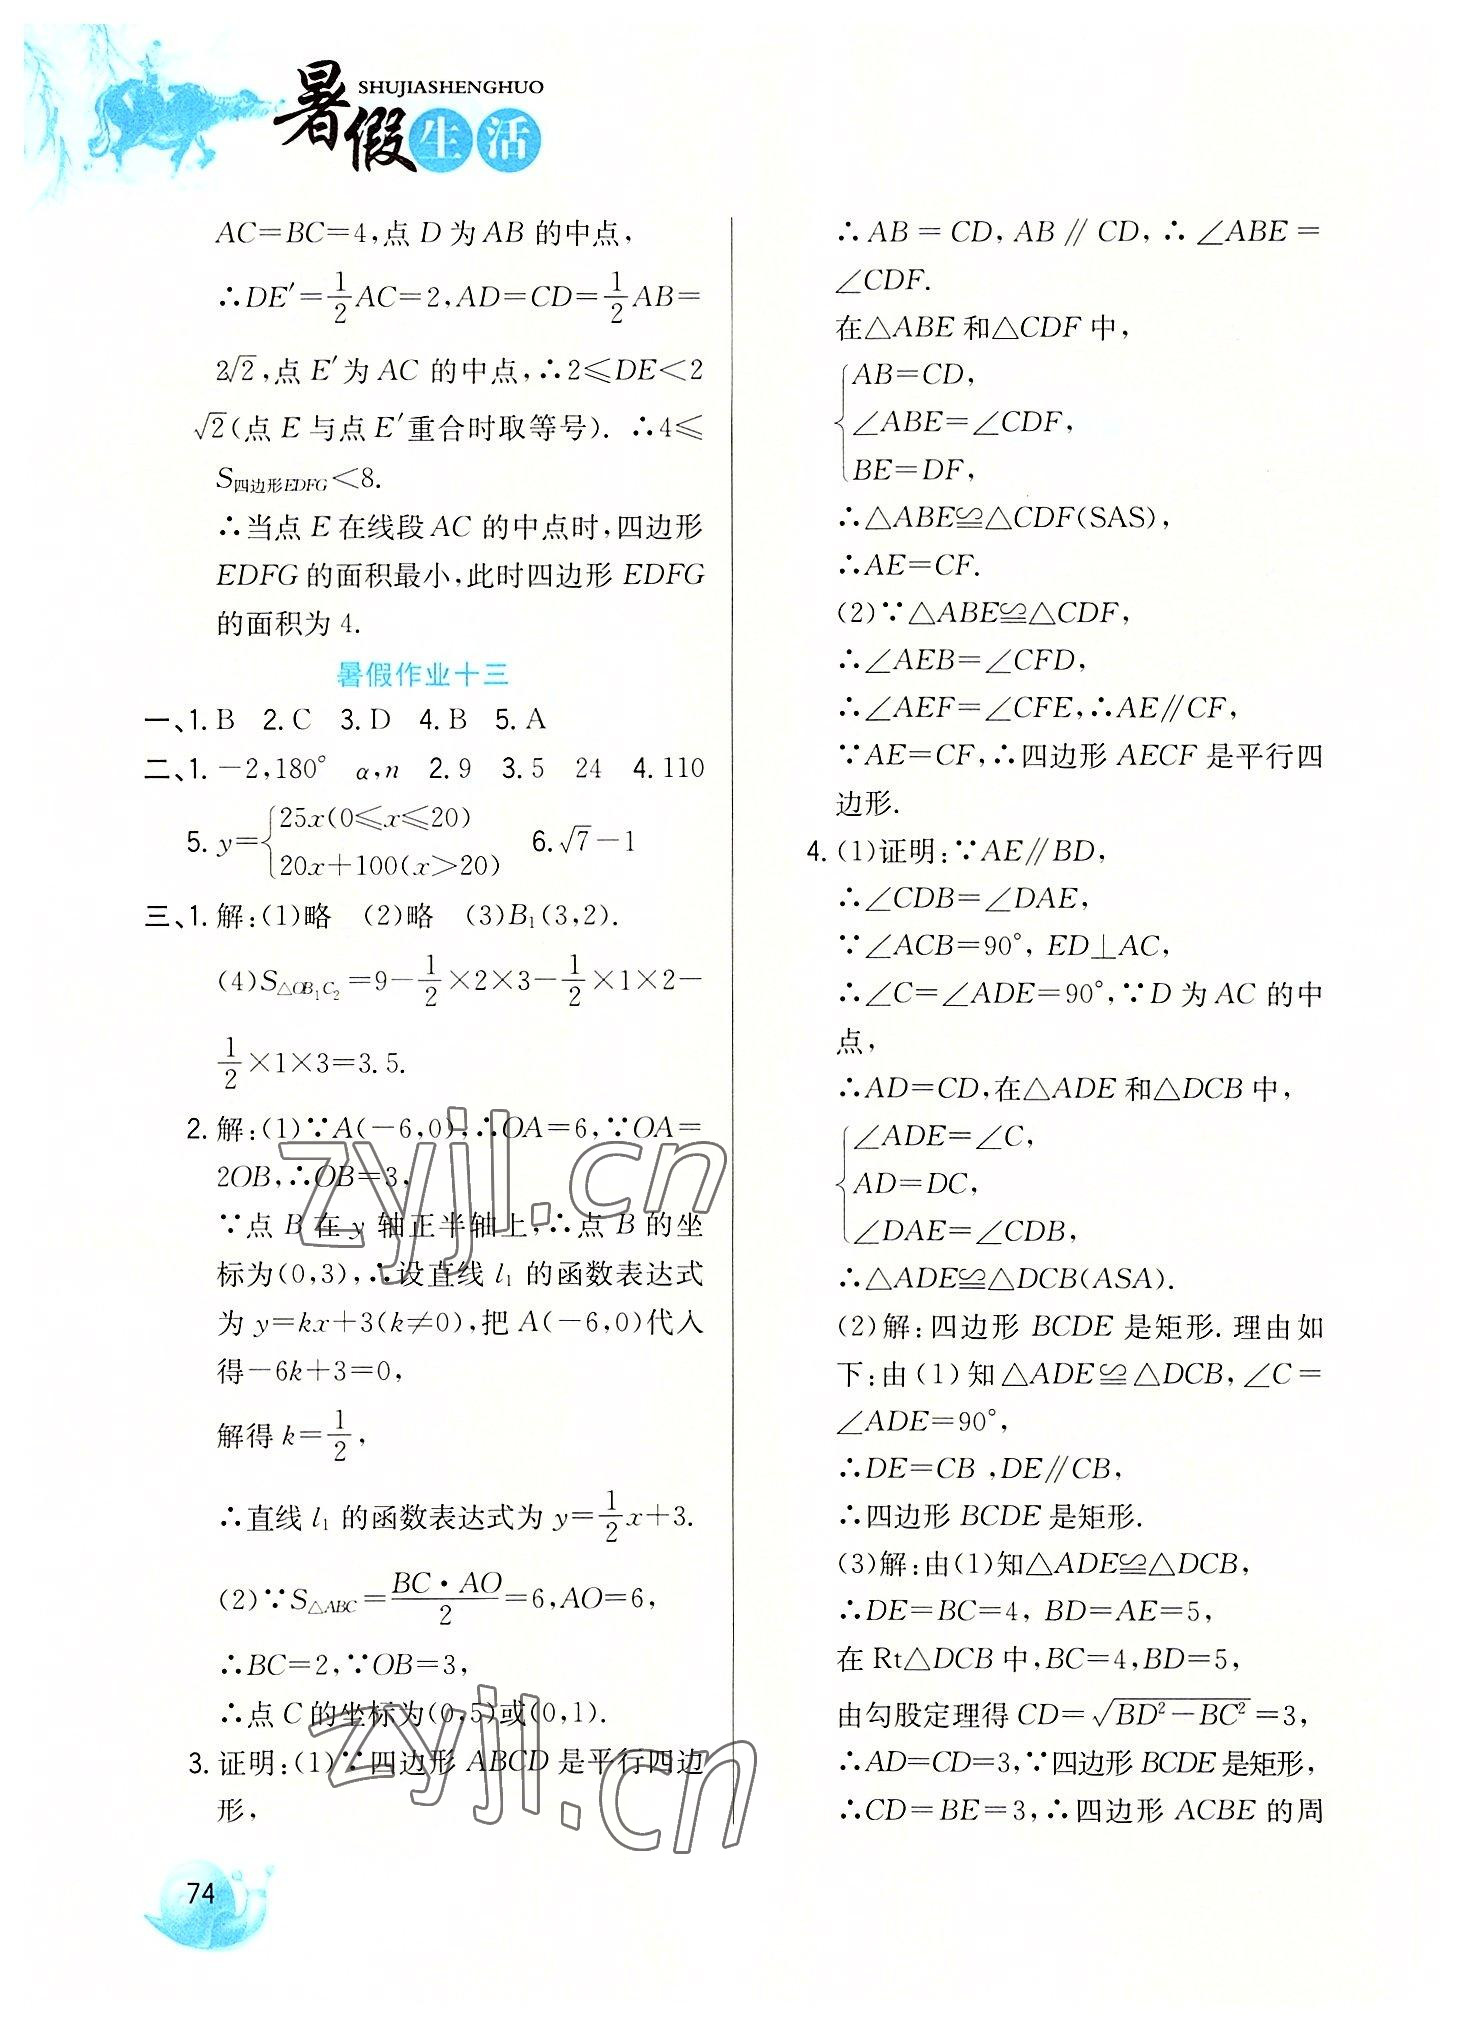 SHUJIASHENGHUO
暑假生活
AC=BC=4,点 D 为 AB 的中点,
∴DE′=1/2AC=2,AD=CD=1/2AB=
2√2,点 E′为 AC 的中点,∴2≤DE<2
√2(点 E 与点 E′重合时取等号). ∴4≤
S四边形EDFG<8.
∴当点 E 在线段 AC 的中点时,四边形
EDFG 的面积最小,此时四边形 EDFG
的面积为 4.
暑假作业十三
一、1. B 2. C 3. D 4. B 5. A
二、1. −2,180° α,n 2. 9 3. 5 24 4. 110
5. y={25x(0≤x≤20)
20x+100(x>20) 6. √7−1
三、1. 解:(1)略 (2)略 (3)B₁(3,2).
(4)S△OB₁C₂=9−1/2×2×3−1/2×1×2−
1/2×1×3=3.5.
2. 解:(1)∵A(−6,0),∴OA=6,∵OA=
2OB,∴OB=3,
∵点 B 在 y 轴正半轴上,∴点 B 的坐
标为(0,3),∴设直线 l₁ 的函数表达式
为 y=kx+3(k≠0),把 A(−6,0)代入
得−6k+3=0,
解得 k=1/2,
∴直线 l₁ 的函数表达式为 y=1/2x+3.
(2)∵S△ABC=BC·AO/2=6,AO=6,
∴BC=2,∵OB=3,
∴点 C 的坐标为(0,5)或(0,1).
3. 证明:(1)∵四边形 ABCD 是平行四边
形,
∴AB=CD,AB∥CD,∴∠ABE=
∠CDF.
在△ABE 和△CDF 中,
{AB=CD,
∠ABE=∠CDF,
BE=DF,
∴△ABE≌△CDF(SAS),
∴AE=CF.
(2)∵△ABE≌△CDF,
∴∠AEB=∠CFD,
∴∠AEF=∠CFE,∴AE∥CF,
∵AE=CF,∴四边形 AECF 是平行四
边形.
4. (1)证明:∵AE∥BD,
∴∠CDB=∠DAE,
∵∠ACB=90°, ED⊥AC,
∴∠C=∠ADE=90°,∵D 为 AC 的中
点,
∴AD=CD,在△ADE 和△DCB 中,
{∠ADE=∠C,
AD=DC,
∠DAE=∠CDB,
∴△ADE≌△DCB(ASA).
(2)解:四边形 BCDE 是矩形. 理由如
下:由(1)知△ADE≌△DCB,∠C=
∠ADE=90°,
∴DE=CB ,DE∥CB,
∴四边形 BCDE 是矩形.
(3)解:由(1)知△ADE≌△DCB,
∴DE=BC=4, BD=AE=5,
在 Rt△DCB 中,BC=4,BD=5,
由勾股定理得 CD=√(BD²−BC²)=3,
∴AD=CD=3,∵四边形 BCDE 是矩形,
∴CD=BE=3,∴四边形 ACBE 的周
zyjl.cn
zyjl.cn
74